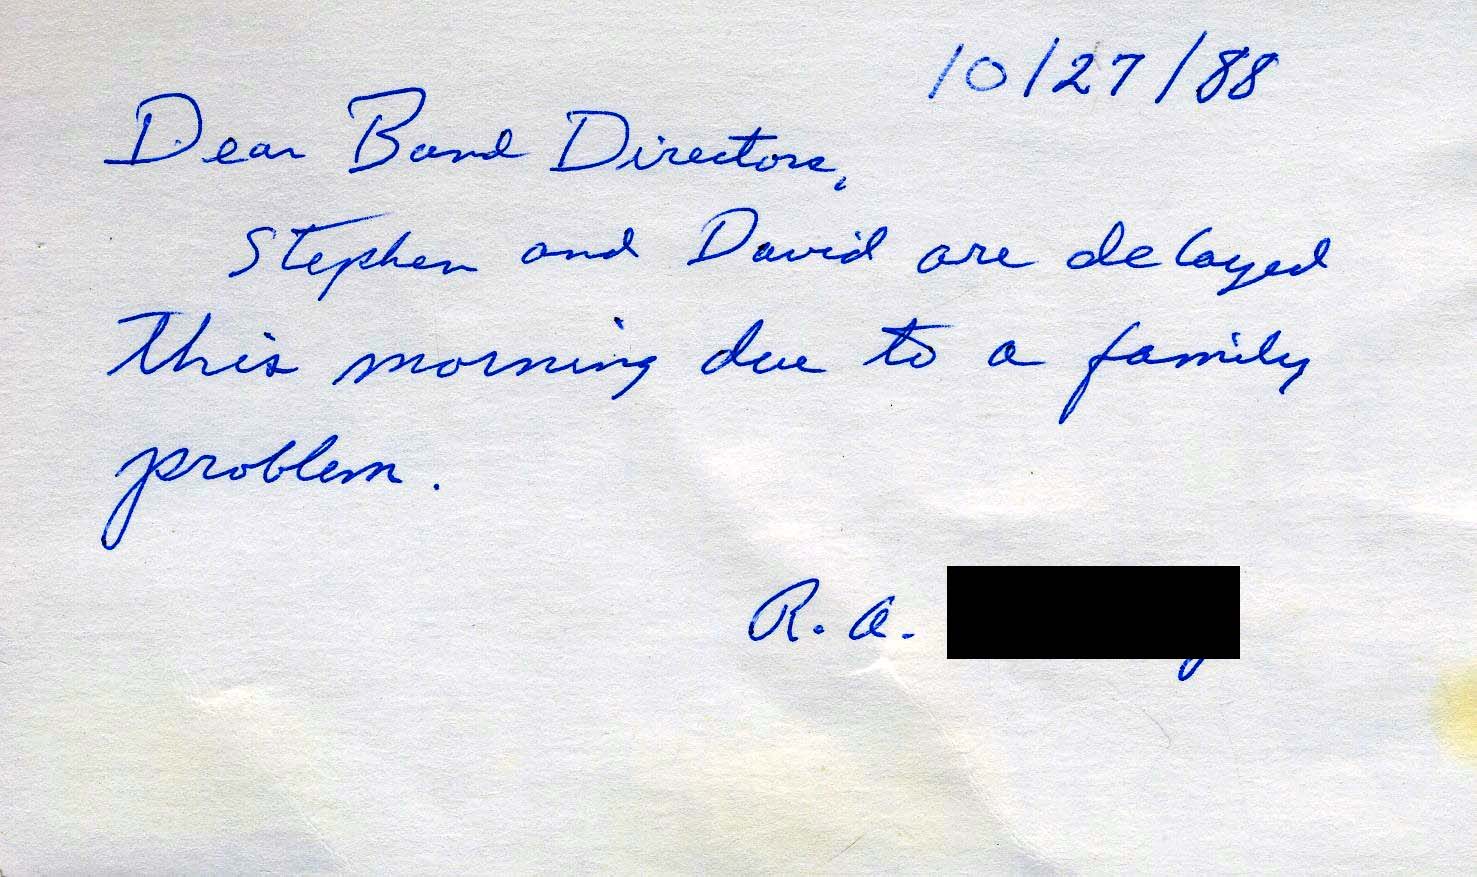 10/27/88
Dear Band Directors,
Stephen and David are delayed
this morning due to a family
problem.
R. A.